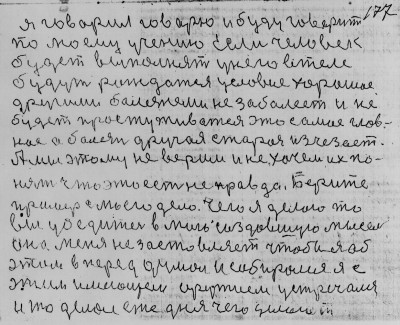 177
я говорил говарю и буду говорит
по моему учению Если человек
будет выполнят у него в теле
будут рождатся условие хорошие
другими балезнями не забалеет и не
будет простуживатся это самае глов-
ное а балезн другая старая изчезает.
А мы этому не верим и не хочем их по-
нят что это ест не правда, Берите
пример с моего дело. Чего я делаю то
вы убедитес в мою создавшую мысел
она меня не заставляет чтобы я об
этом в перед думал и собирался я с
этим имеющем оружием устречался
и то делою еже дня чего делают